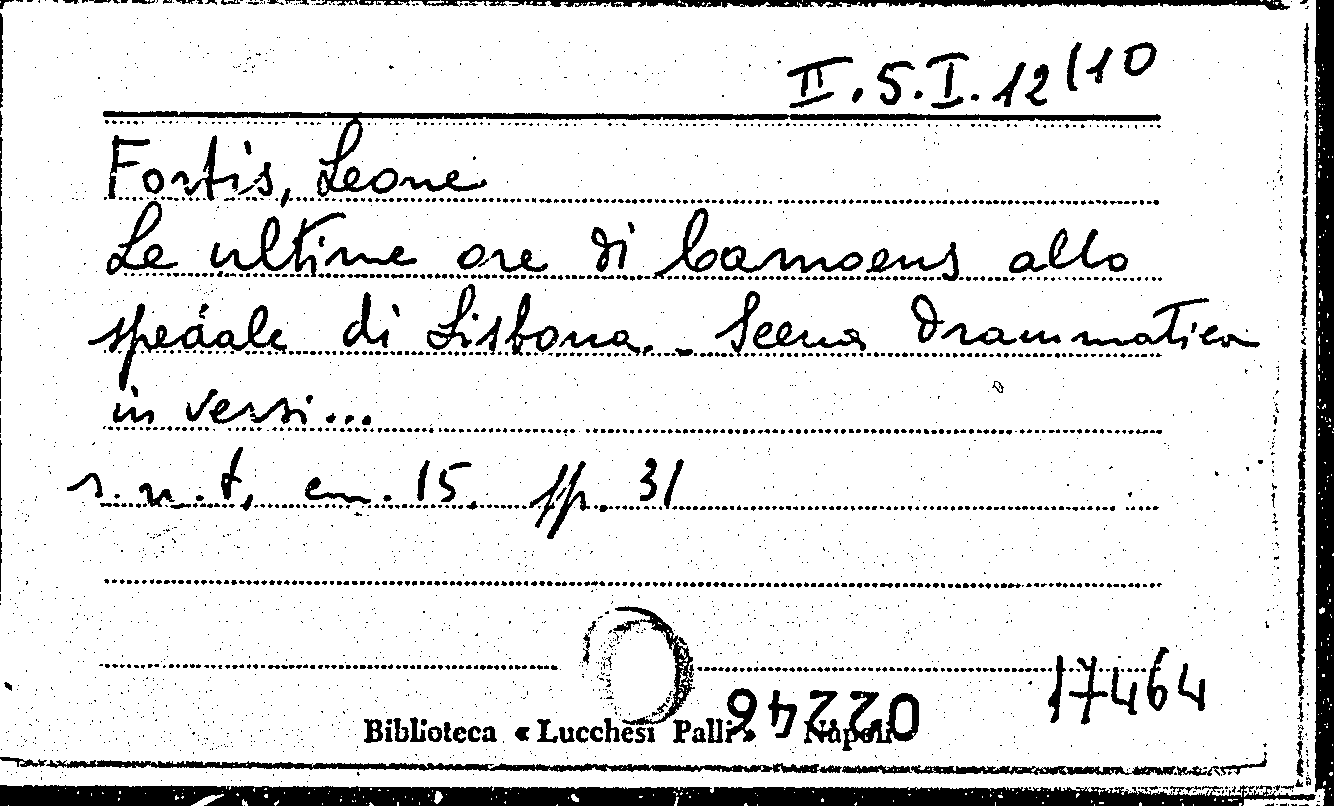 II.5.I.12(10
Fortis, Leone
Le ultime ore di Camoens allo
spedale di Lisbona. - Scena drammatica
in versi...
s.n.t, cm. 15. pp. 31
17464
02246
Biblioteca « Lucchesi Palli » Napoli